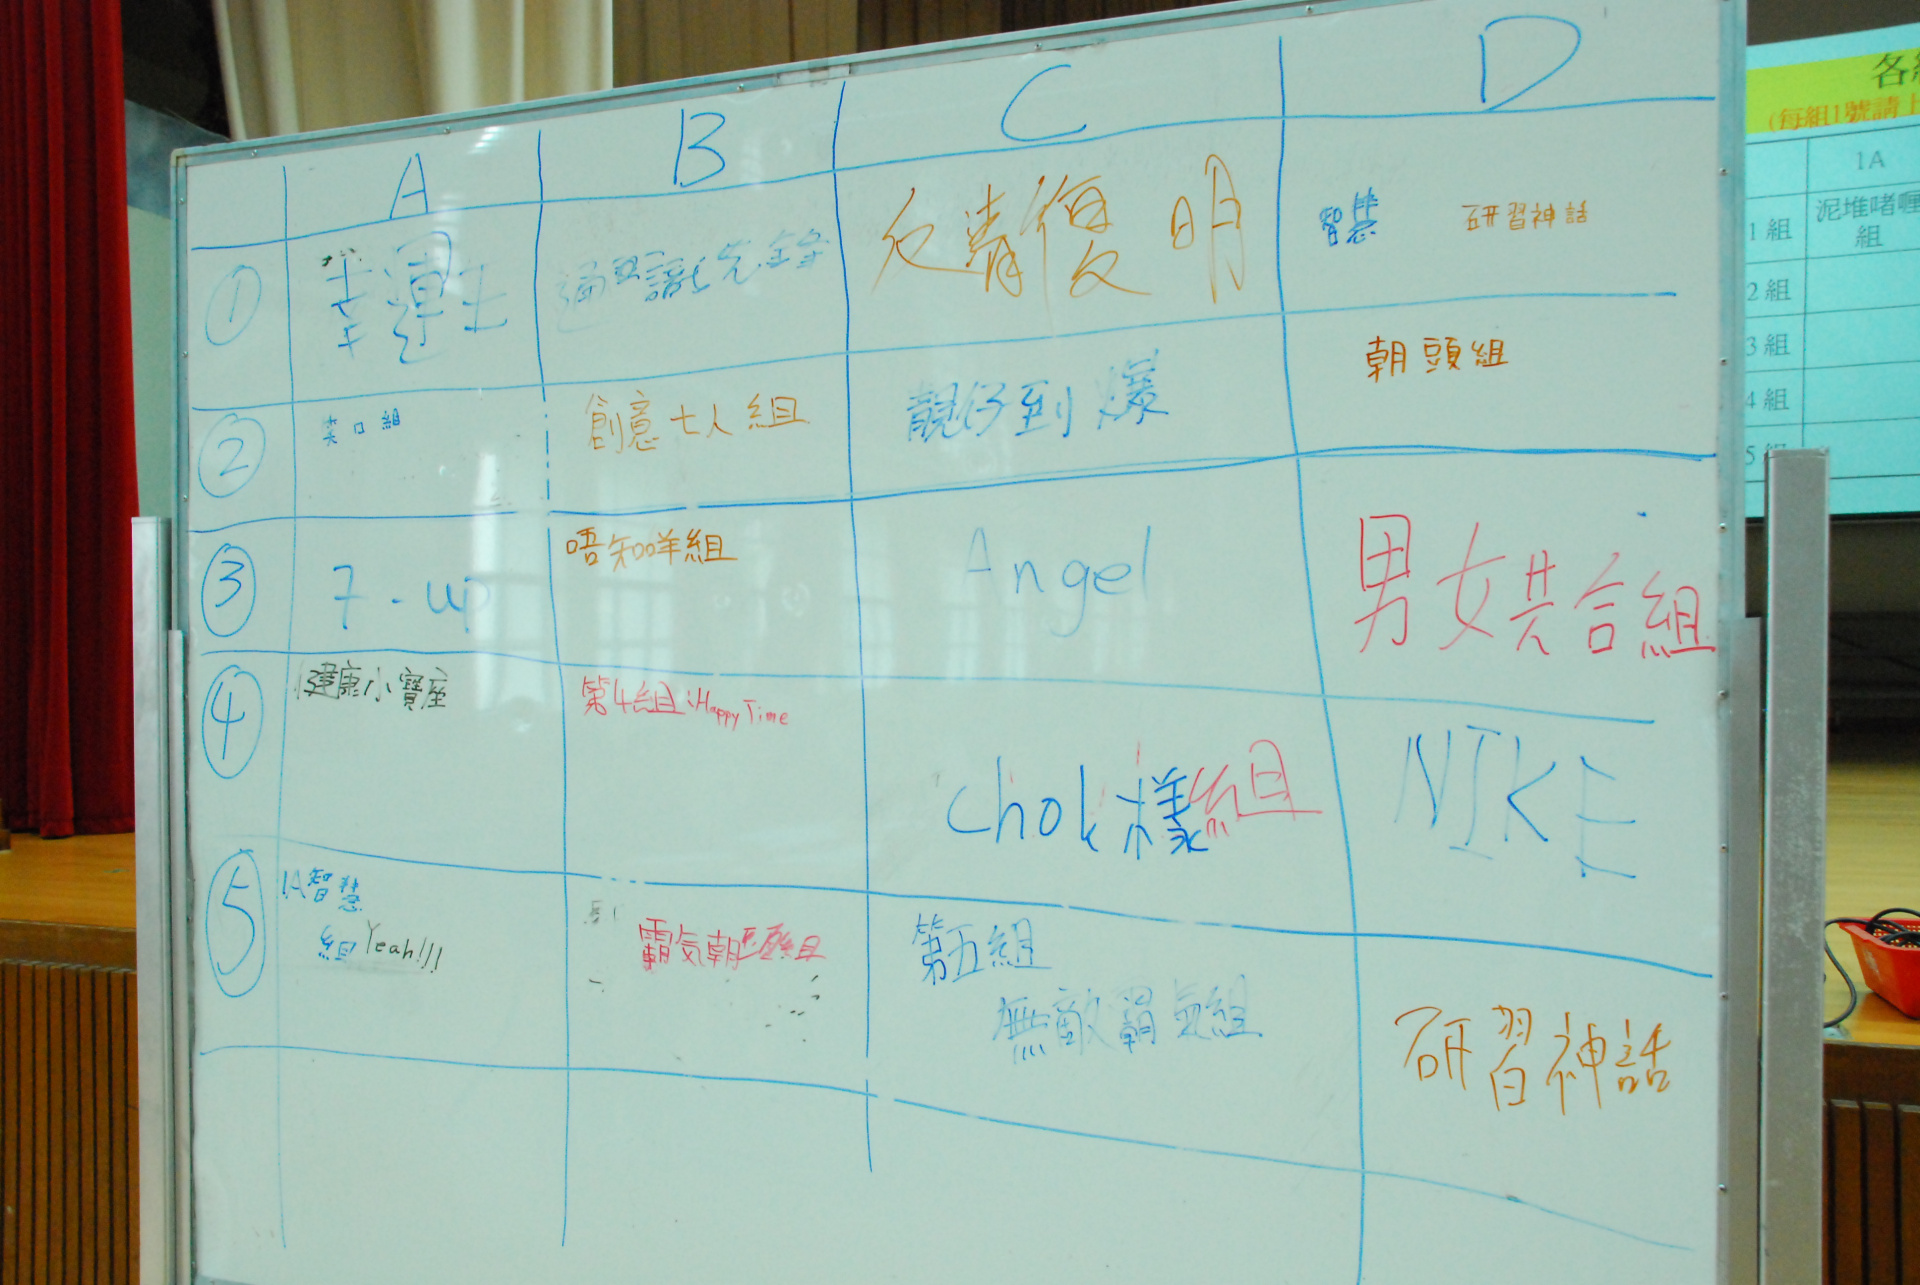 A B C D
① 幸運王 通識先鋒 反清復明 智慧 研習神話
② 創意七人組 靚仔到爆 朝頭組
③ 7-up 唔知咩組 Angel 男女共合組
④ 健康小寶座 第4組:Happy Time Chok樣組 NIKE
⑤ 1A智慧 霸气朝 第五組 研習神話
組Yeah!!! 無敵霸氣組
各
(每組1號請上
1A
1組 泥堆啫喱
組
2組
3組
4組
5組